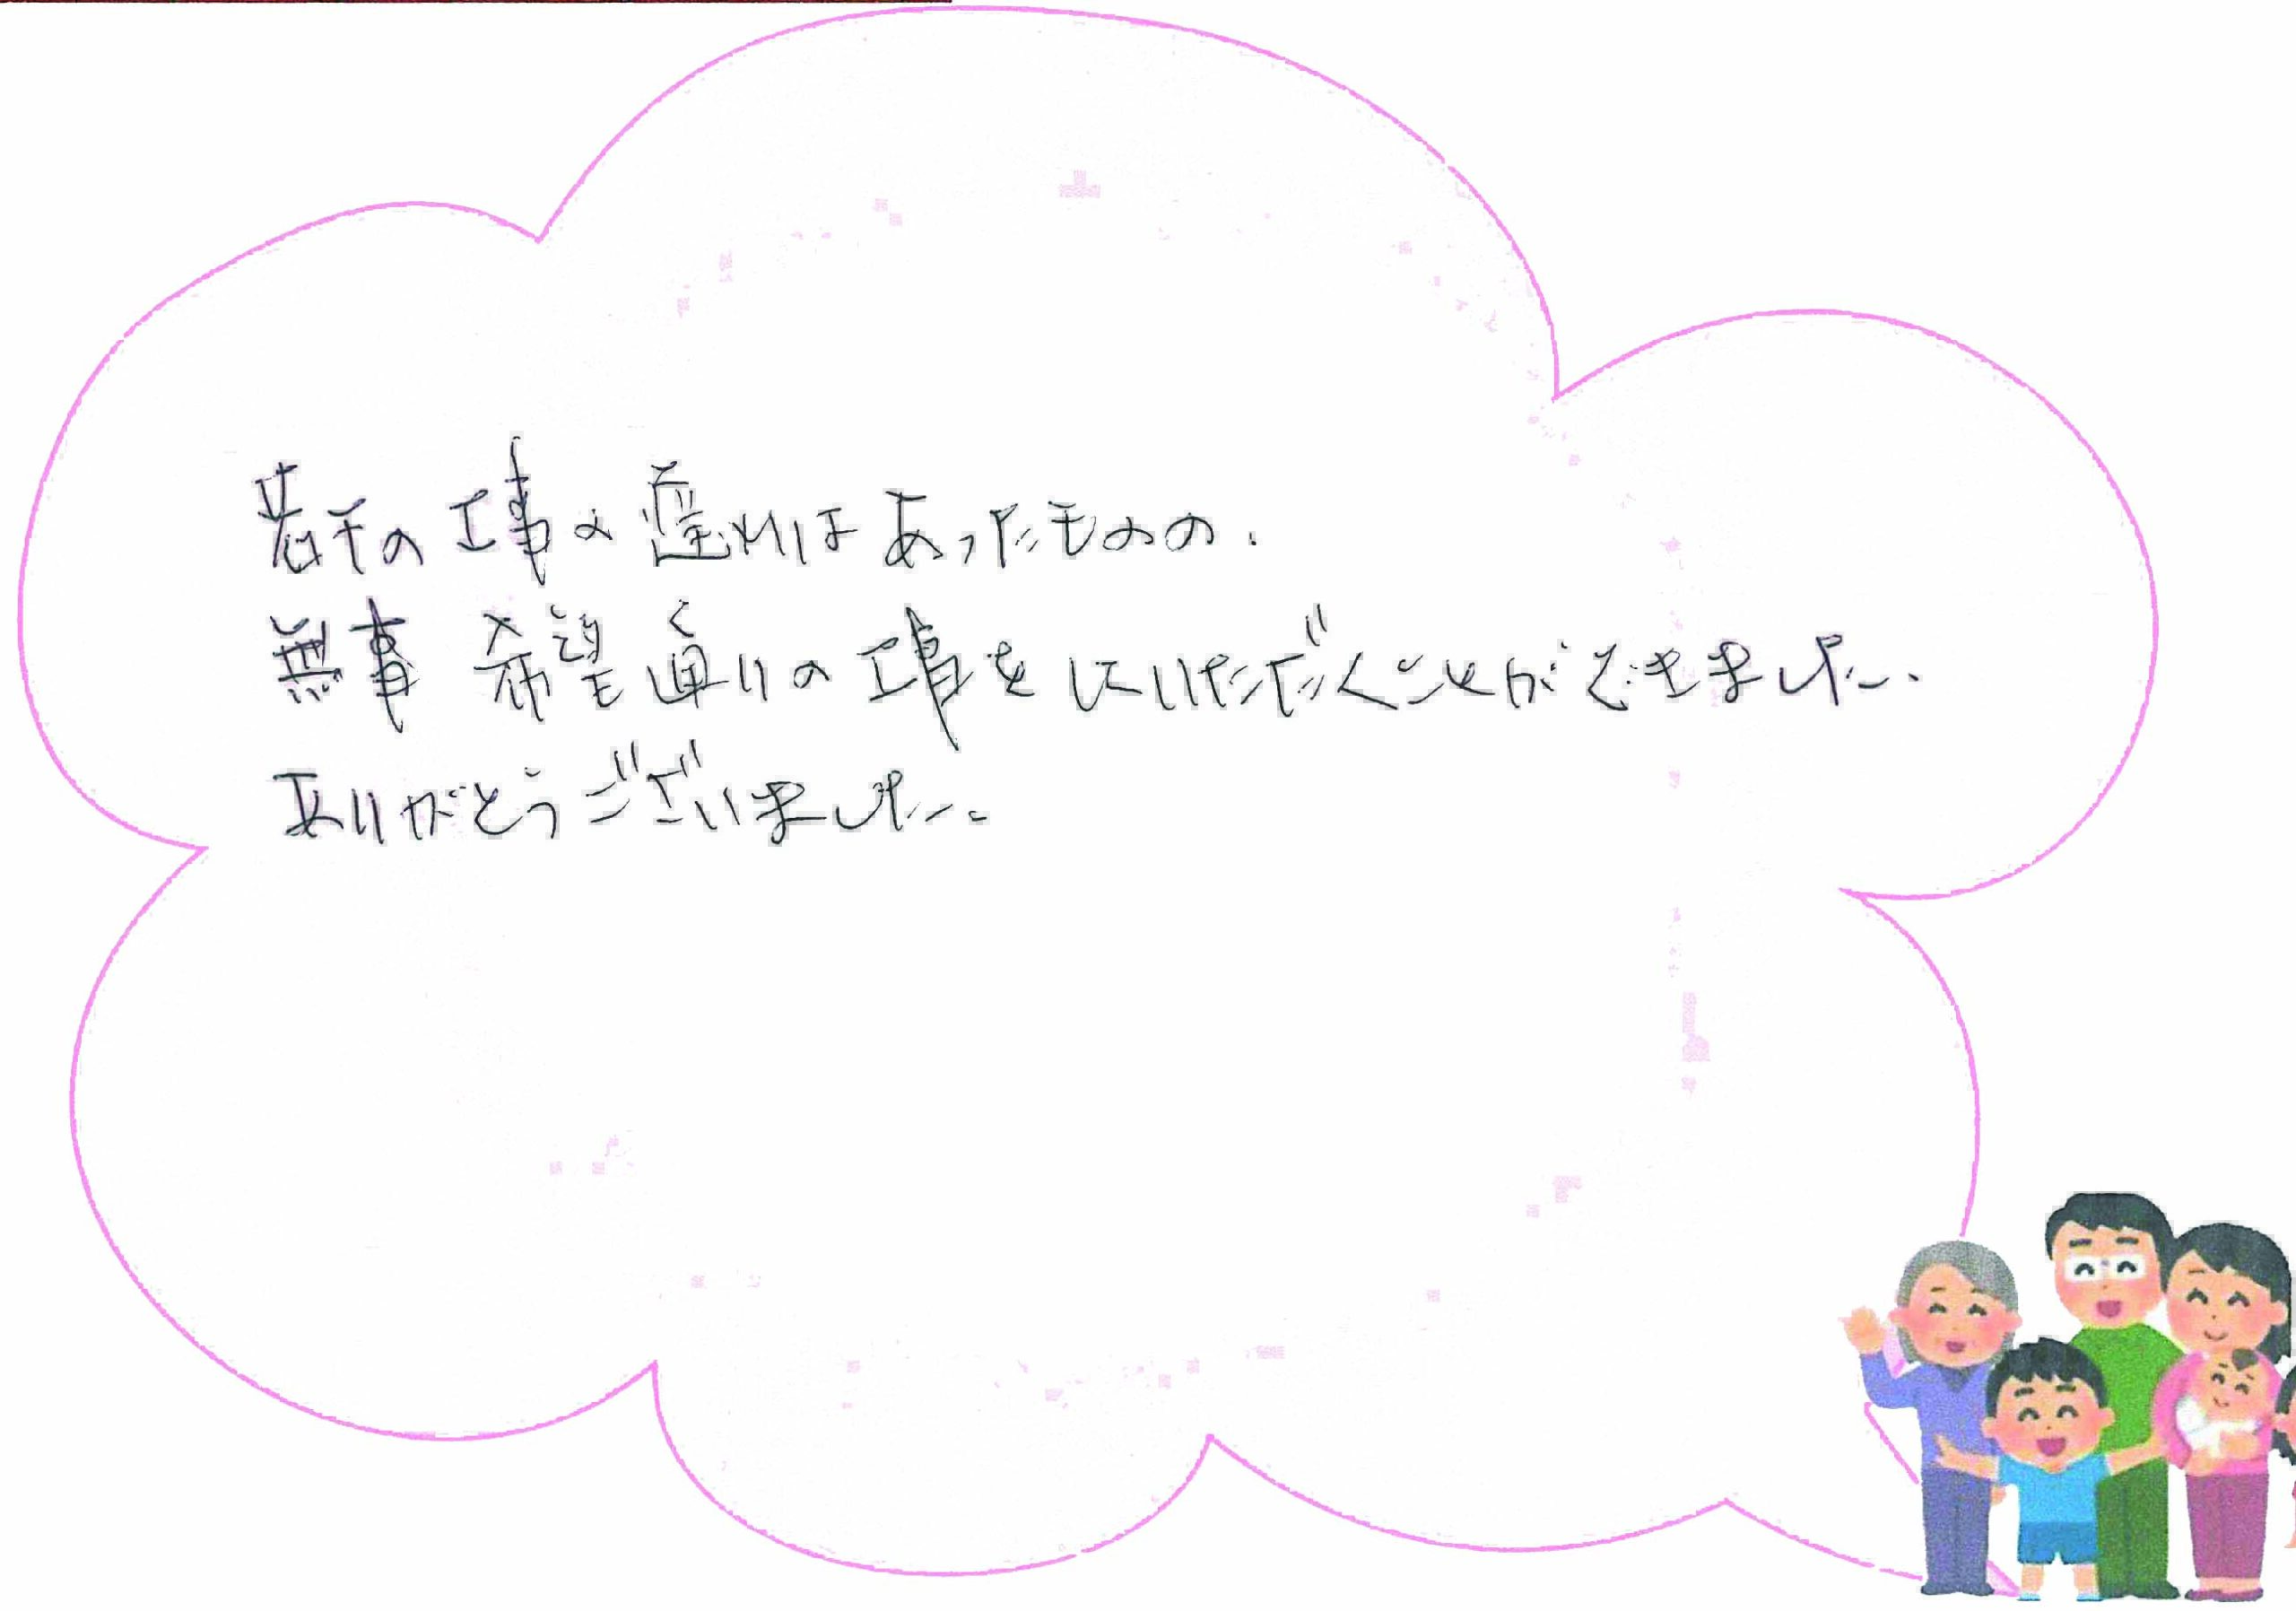 若干の工事の遅れはあったものの、
無事 希望通りの工事をしていただくことができました。
ありがとうございました。